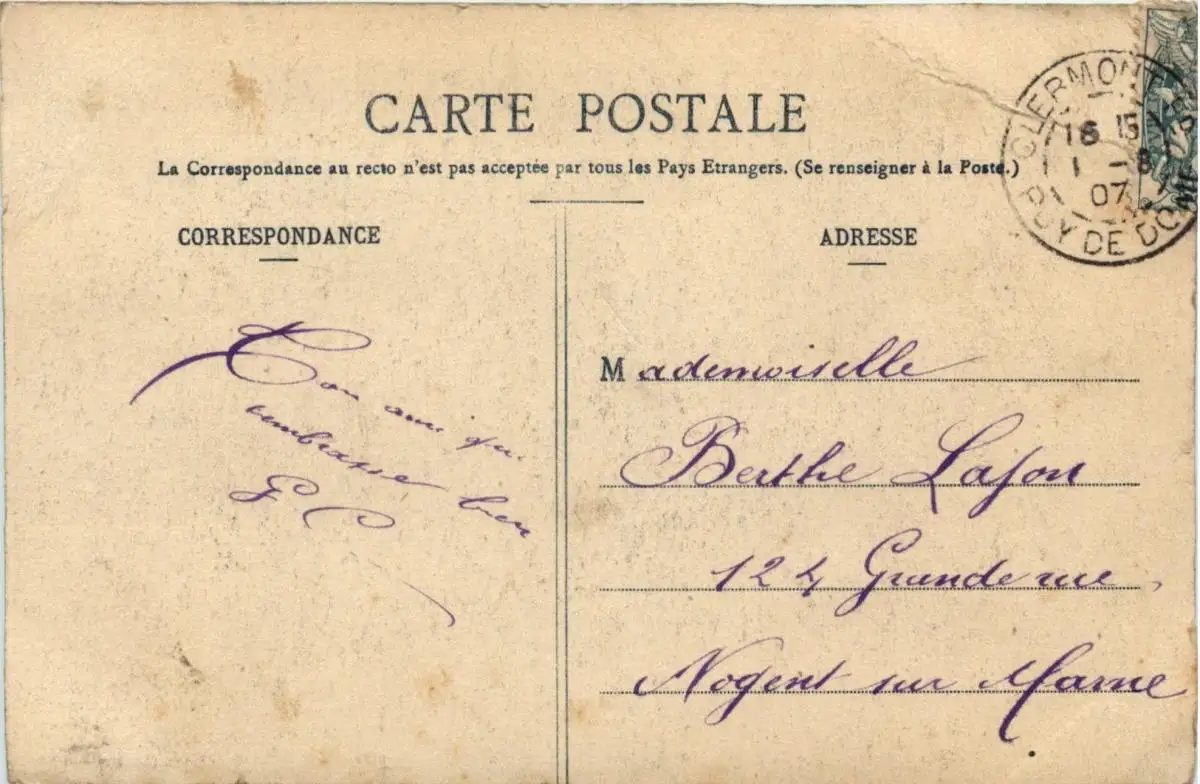 CARTE POSTALE
La Correspondance au recto n'est pas acceptée par tous les Pays Etrangers. (Se renseigner à la Poste.)
CLERMONT
PUY DE DOME
18 15
1 - 8
07
CORRESPONDANCE
ADRESSE
Ton ami qui
t'embrasse bien
Mademoiselle
Berthe Lafon
124 Grande rue
Nogent sur Marne